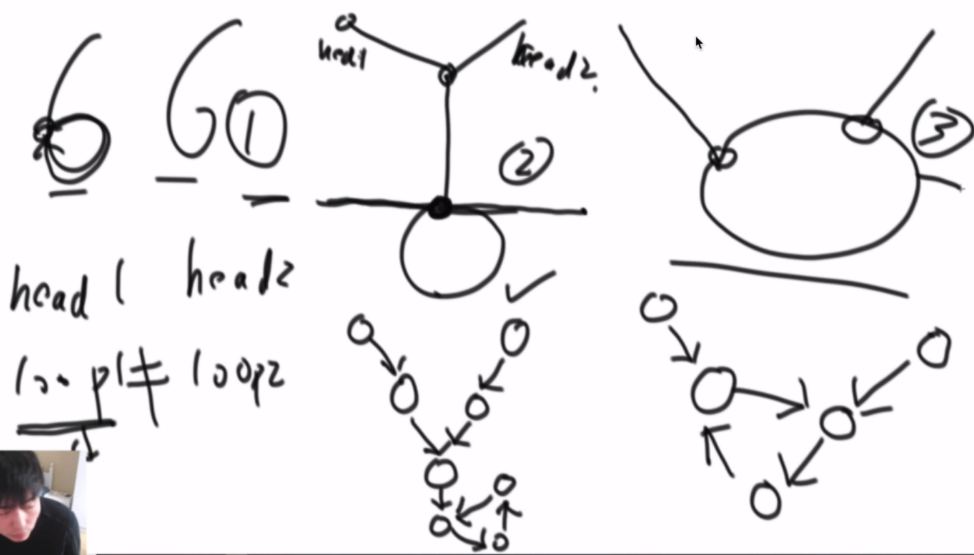 66①
head1
head2
②
③
head1 head2
loop1≠loop2